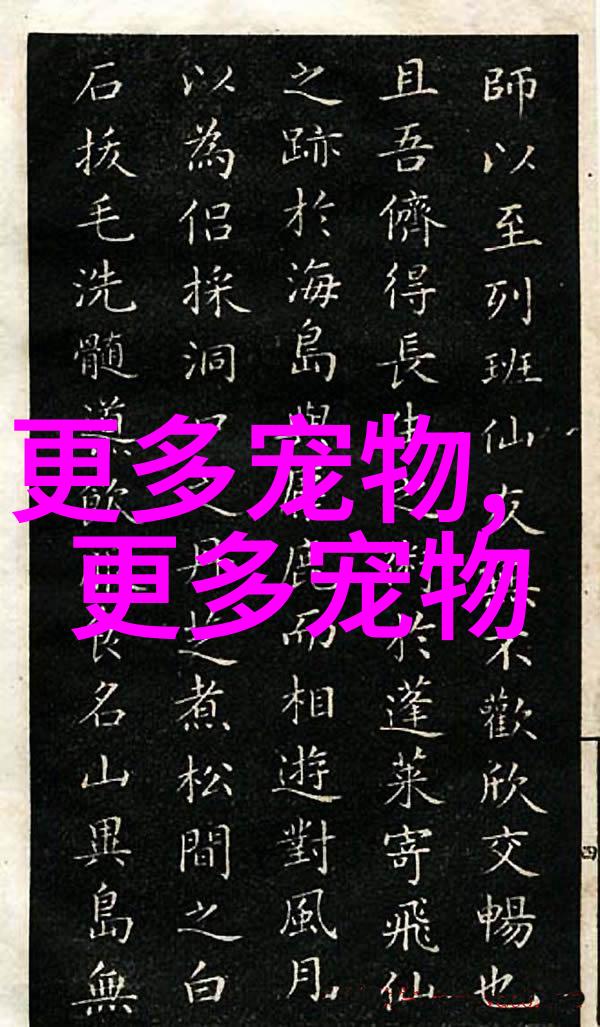 師以至列班仙友不歡欣交暢也
且吾儕得長生術於蓬萊寄飛仙
之跡於海島與鹿而相遊對風月
以為侶採洞之丹芝煮松間之白
石拔毛洗髓飲食名山異島無
更多宠物,
更多宠物